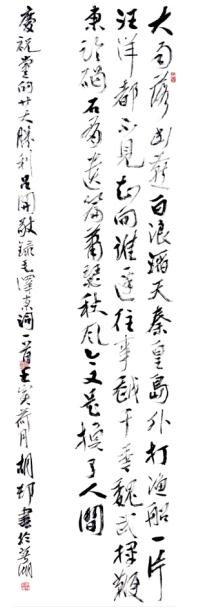 大雨落幽燕白浪滔天秦皇島外打漁船一片
汪洋都不見知向誰邊往事越千年魏武揮鞭
東臨碣石有遺篇蕭瑟秋風今又是換了人間
慶祝黨的廿大勝利召開敬錄毛澤東詞一首壬寅荷月胡書於